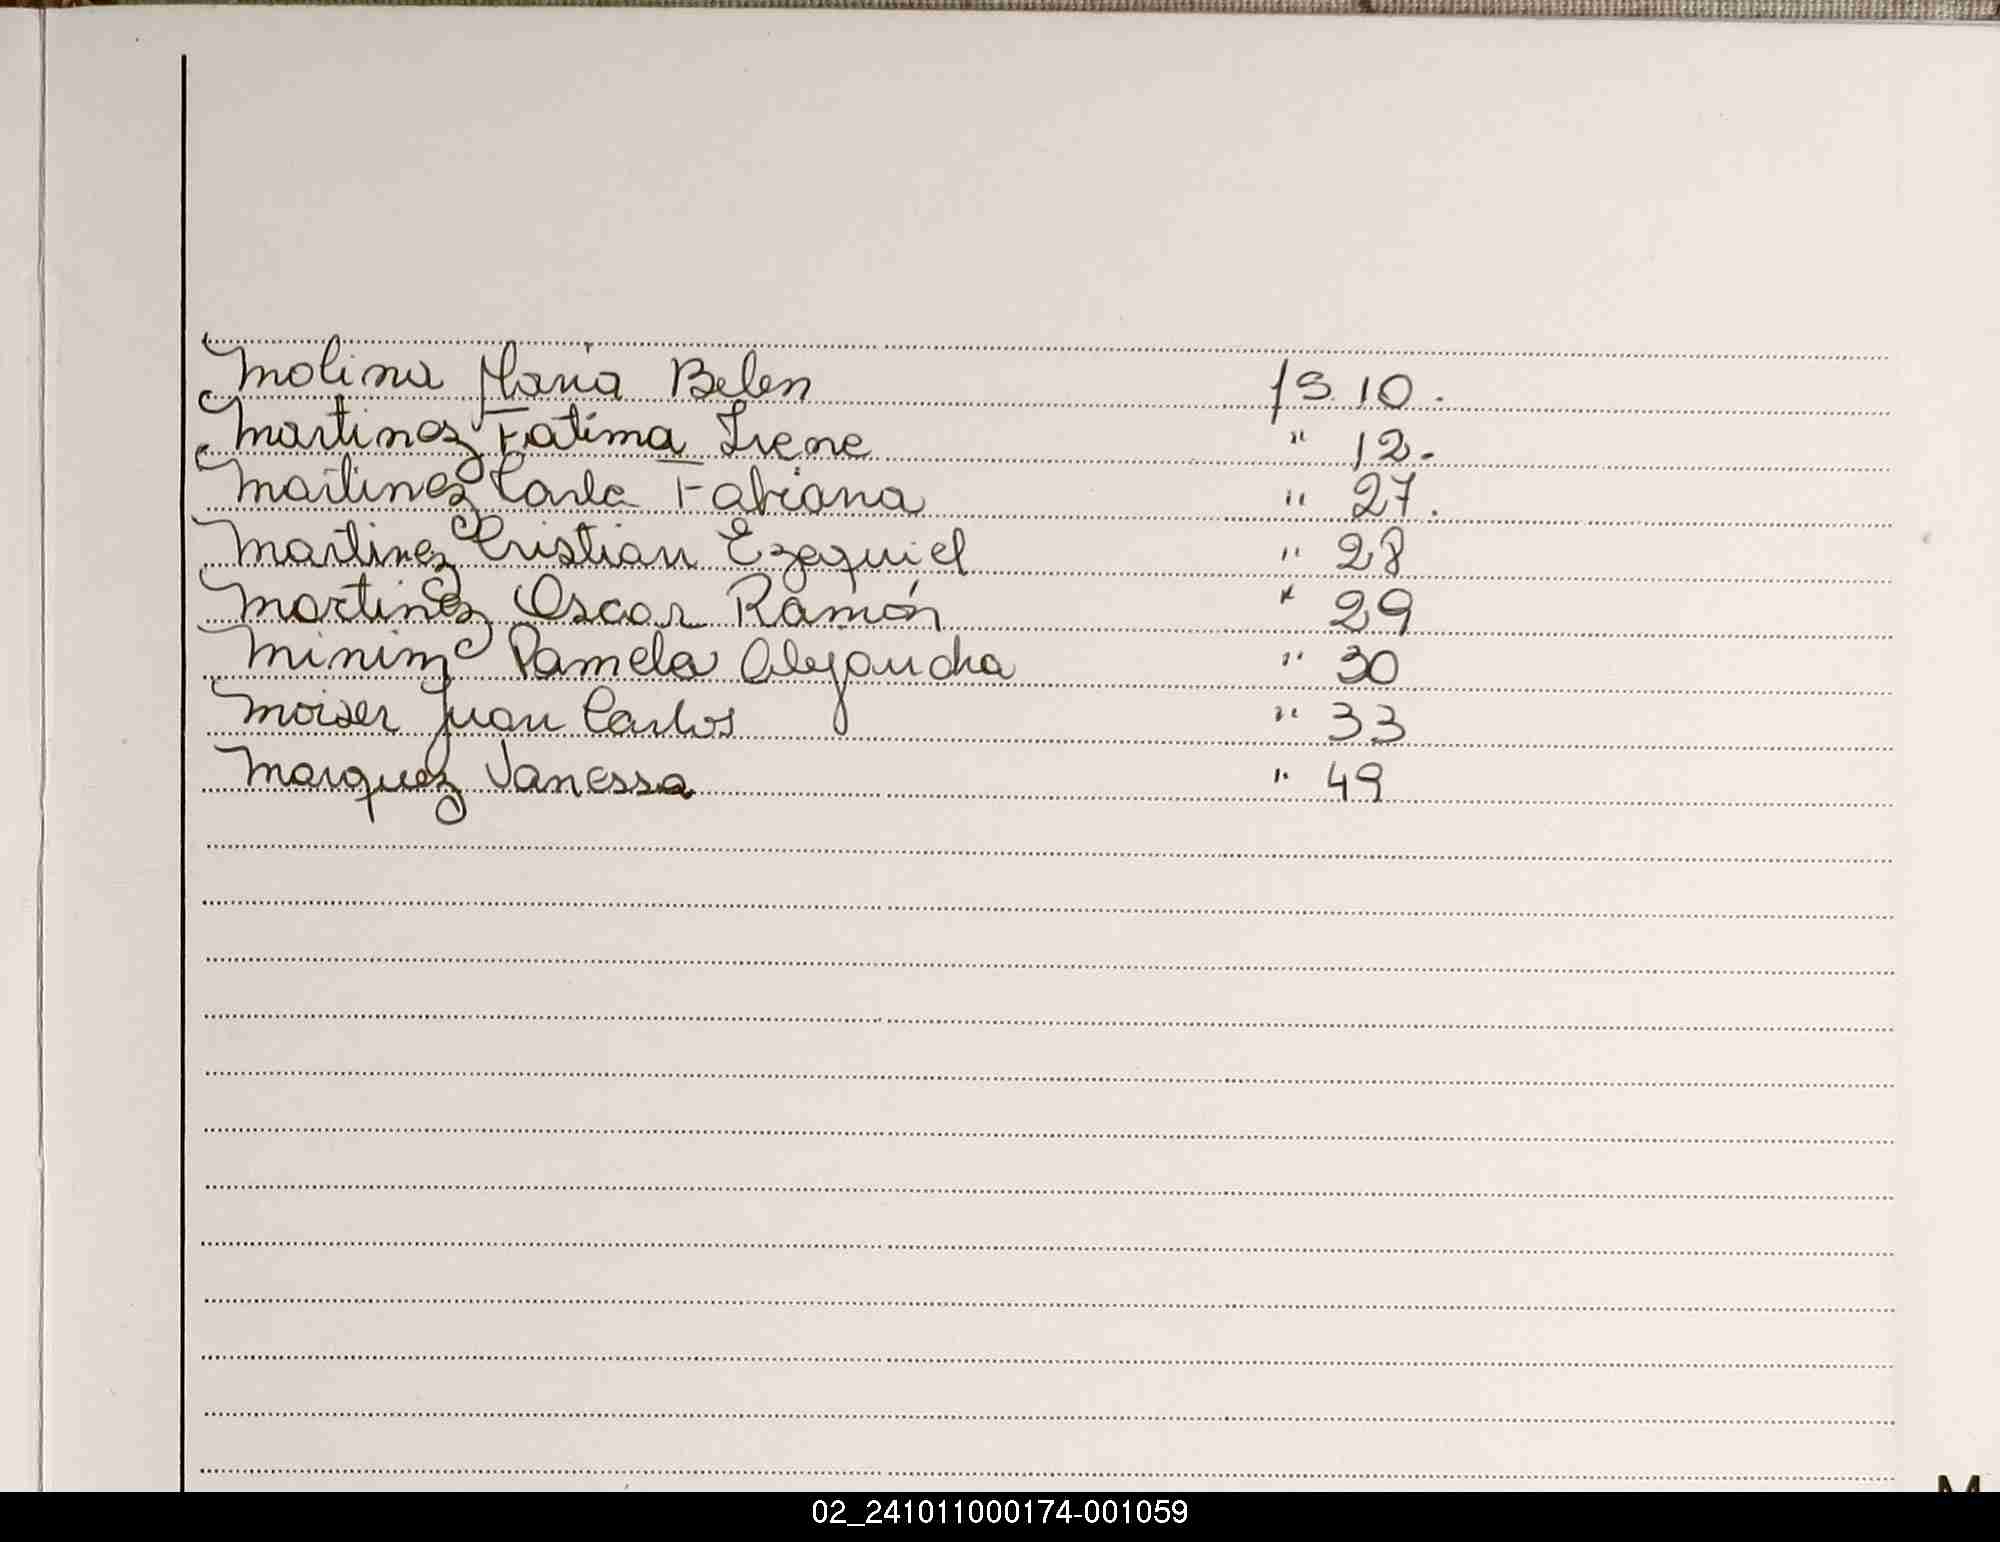 Molina Maria Belen fs. 10.
Martinez Fatima Irene " 12.
Martinez Carla Fabiana " 27.
Martinez Cristian Ezequiel " 28
Martinez Oscar Ramón " 29
Minim Pamela Alejandra " 30
Moiser Juan Carlos " 33
Marquez Vanessa " 49
M
02_241011000174-001059